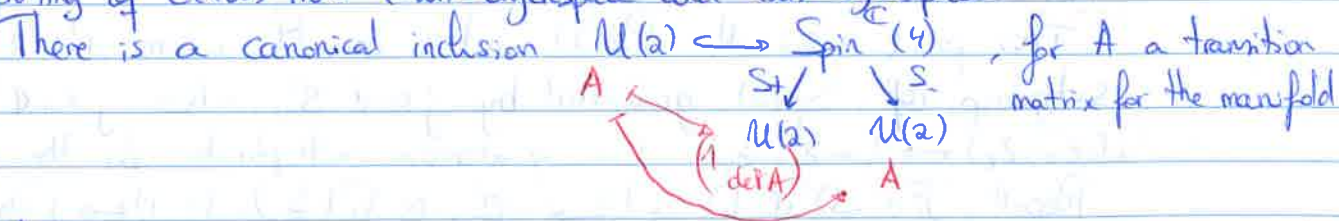 There is a canonical inclusion U(2) ↪ Spin^C(4), for A a transition
matrix for the manifold
A S+ S-
U(2) U(2)
(1 det A) A